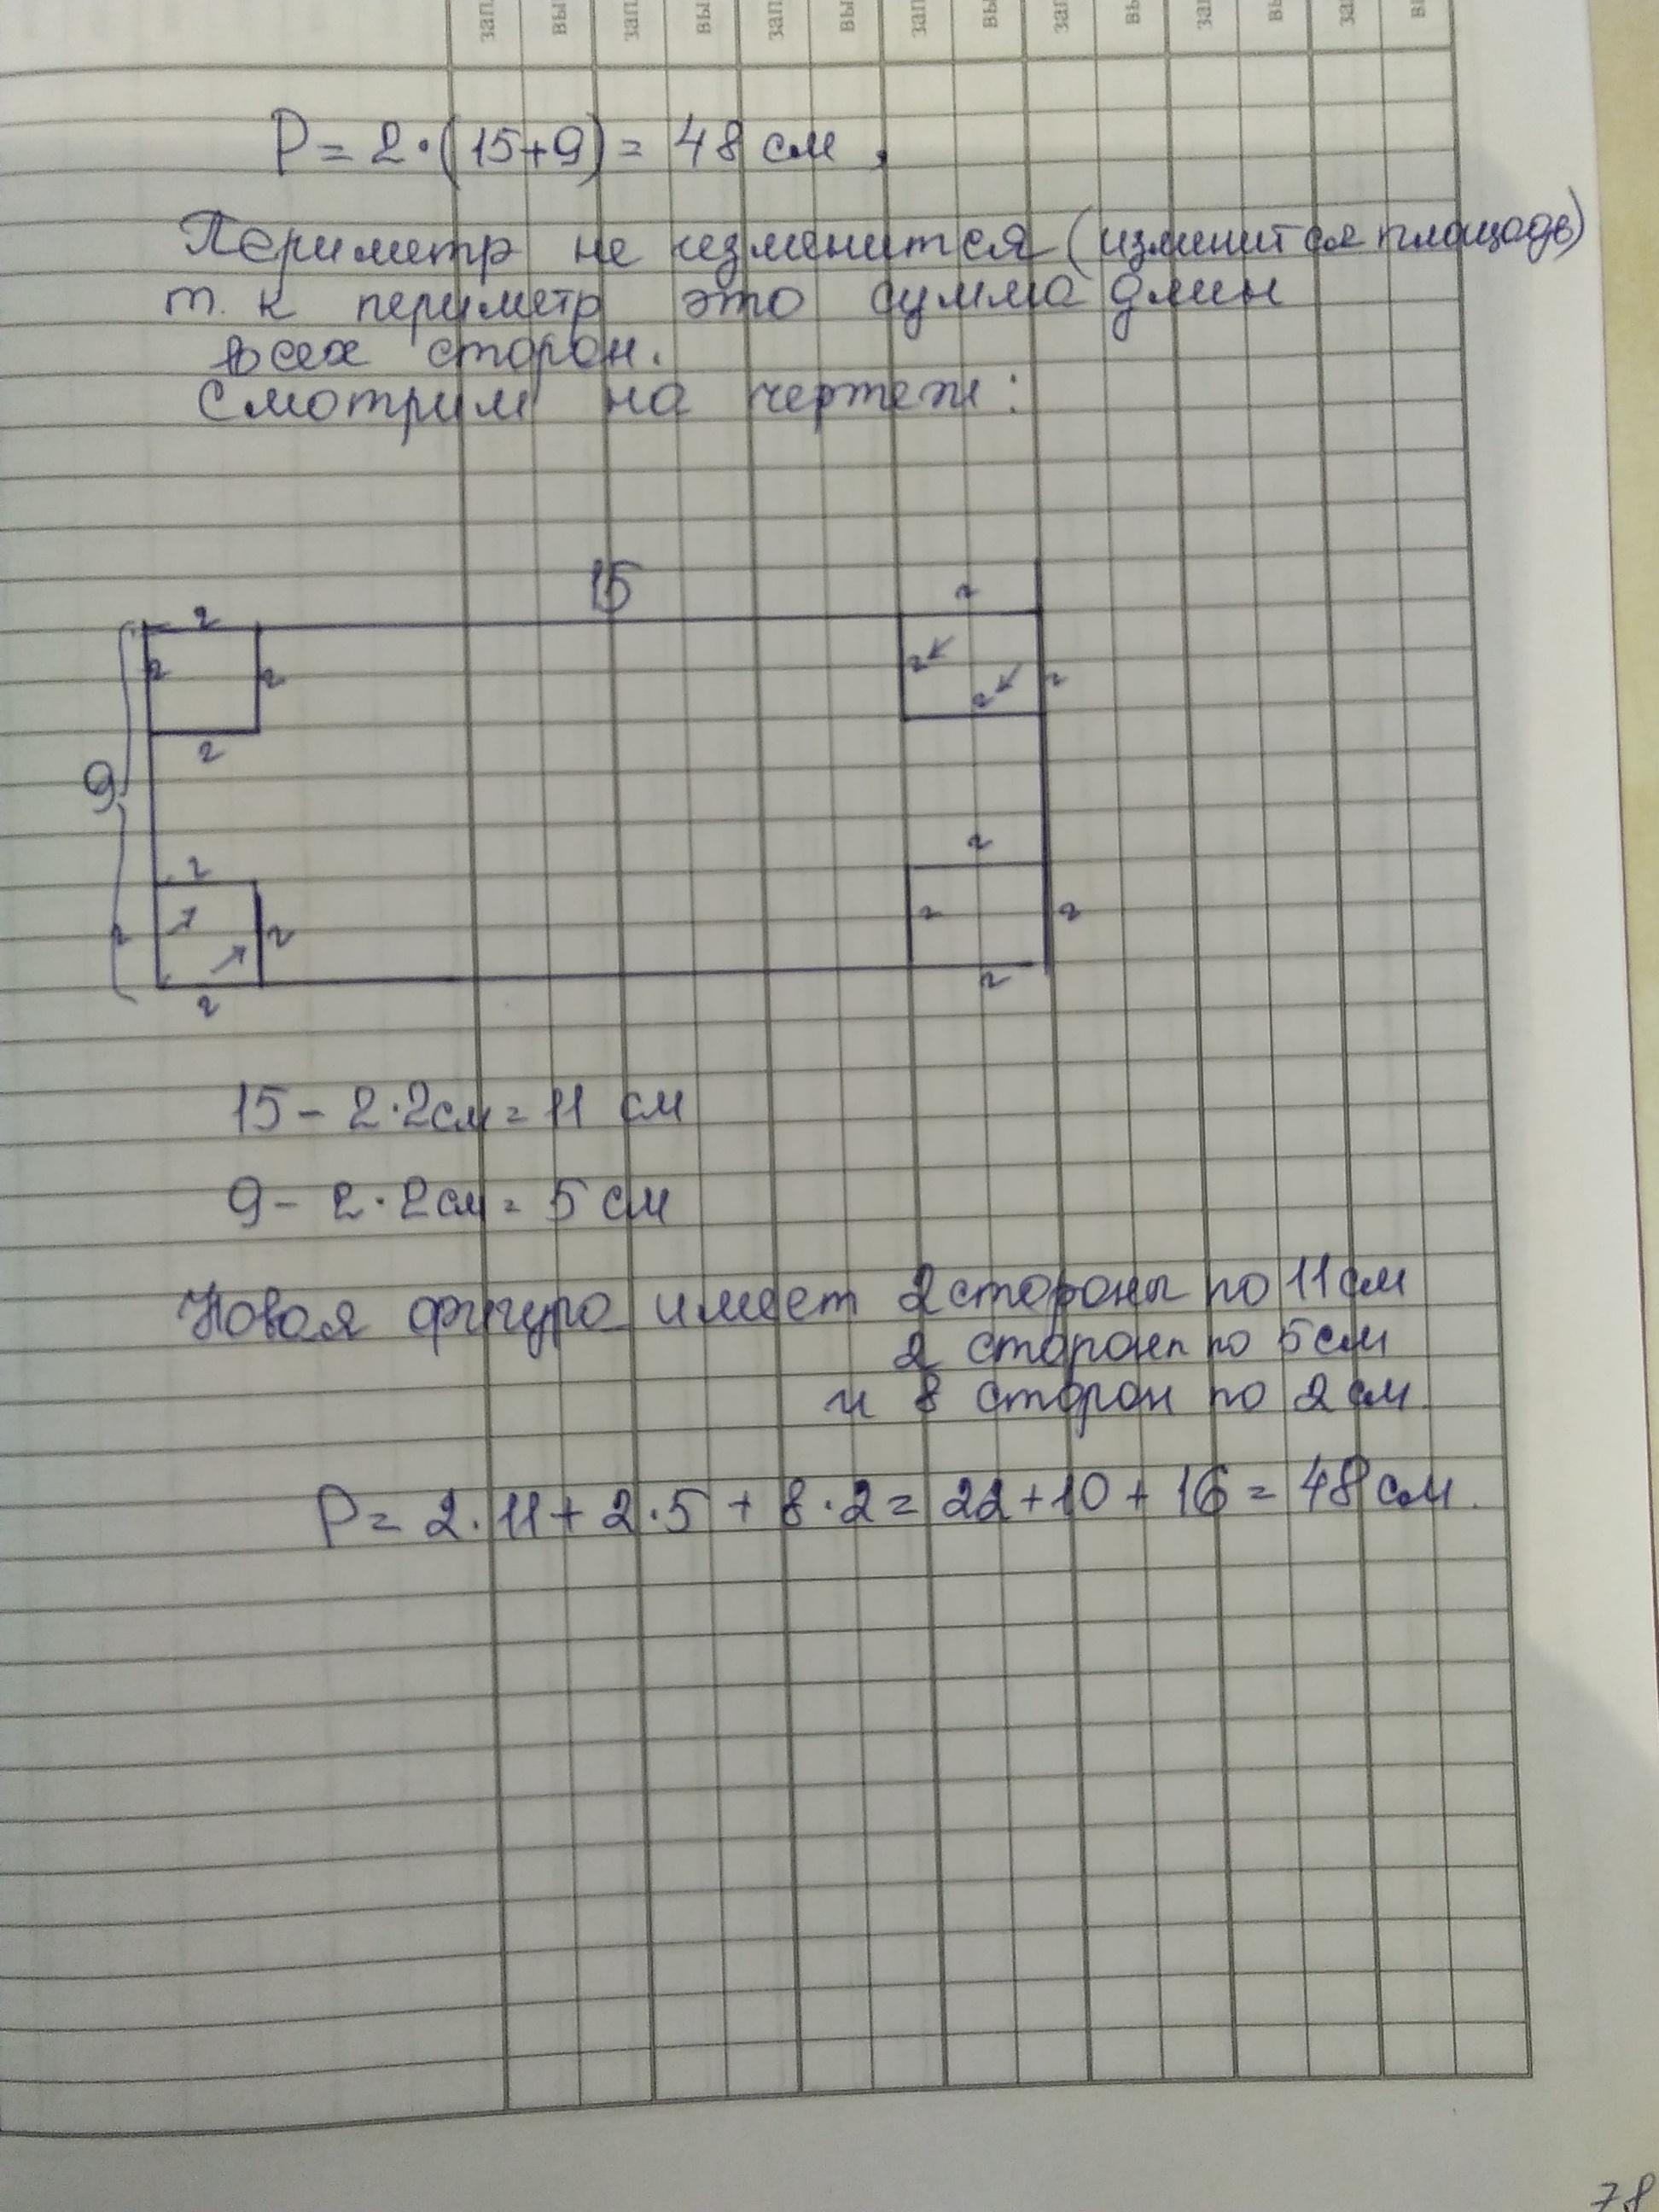 зап. вы зап. вы зап. вы зап. вы зап. вы зап. вы зап. вы
P = 2·(15+9) = 48 см.
Периметр не изменится (изменится площадь)
т. к периметр это сумма длин
всех сторон.
Смотрим на чертеж:
15
2 2
2 2 2 2 2
2
9
2 2
2 2 2 2
2 2
15 - 2·2см = 11 см
9 - 2·2см = 5 см
Новая фигура имеет 2 стороны по 11 см
2 стороны по 5 см
и 8 сторон по 2 см.
P = 2·11 + 2·5 + 8·2 = 22 + 10 + 16 = 48 см.
78